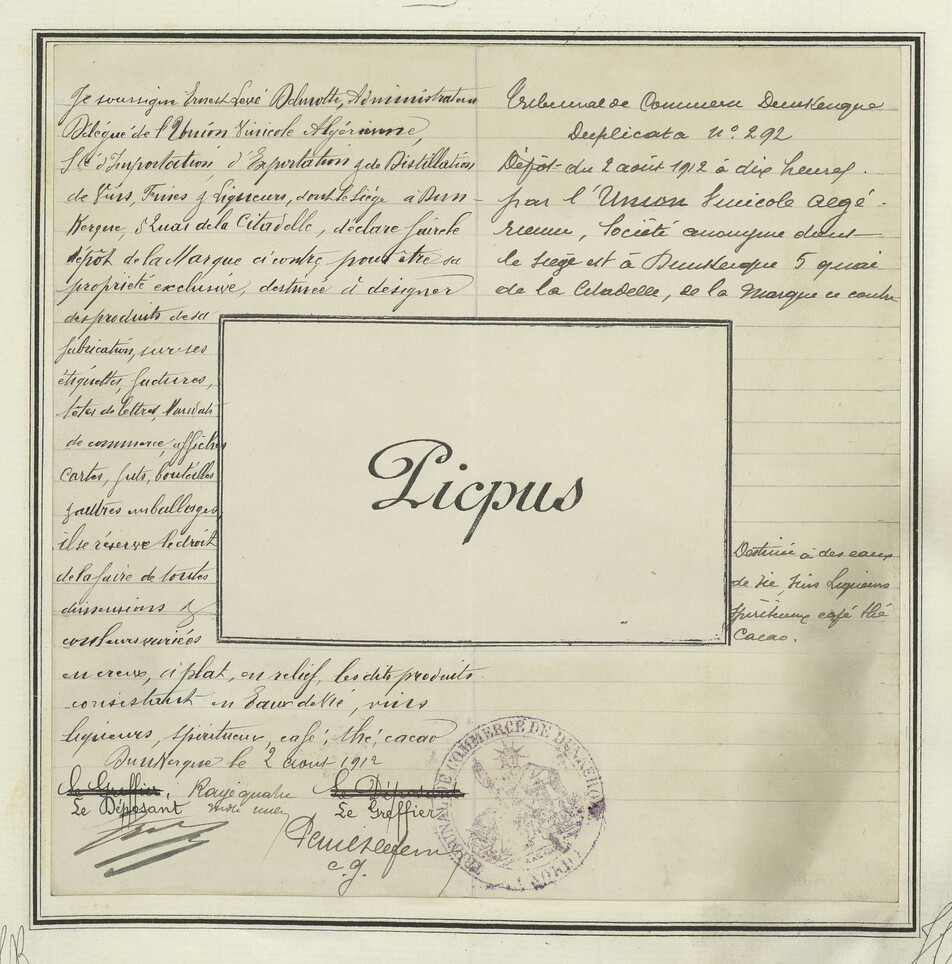 Je soussigné Ernest Levé Delmotte, Administrateur
Délégué de l'Union Vinicole Algérienne,
Sté d'Importation, d'Exportation & de Distillation
de Vins, Fines & Liqueurs, dont le siège à Dun-
Kerque, 5 Quai de la Citadelle, déclare faire le
dépôt de la Marque ci contre pour être sa
propriété exclusive, destinée à designer
des produits de sa
fabrication, sur ses
étiquettes, factures,
têtes de lettres, Mandats
de commerce, affiches
cartes, futs, bouteilles
& autres emballages,
il se réserve le droit
de la faire de toutes
dimensions &
couleurs variées
en creux, à plat, en relief, les dits produits
consistant en Eaux de Vie, vins
liqueurs, spiritueux, café, thé, cacao
Dunkerque le 2 aout 1912
Le Greffier, Rayé quatre Le Déposant
Le Déposant mots nuls Le Greffier
c. g.
Tribunal de Commerce Dunkerque
Duplicata n° 292
Dépôt du 2 août 1912 à dix heures.
par l'Union Vinicole algé-
rienne, Société anonyme dont
le siège est à Dunkerque 5 quai
de la Citadelle, de la Marque ci contre
Picpus
Destinée à des eaux
de vie, vins liqueurs
spiritueux café thé
cacao.
TRIBUNAL DE COMMERCE DE DUNKERQUE
(NORD)